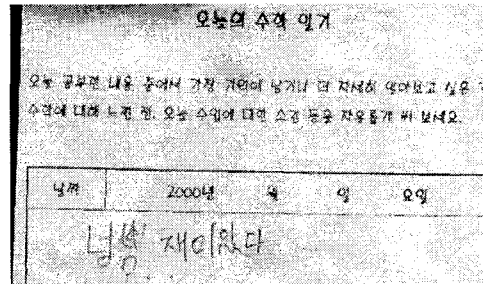 오늘의 수학 일기
오늘 공부한 내용 중에서 가장 기억에 남거나 더 자세히 알아보고 싶은
수학에 대해 느낀 점, 오늘 수업에 대한 소감 등을 자유롭게 써 보세요.
날짜 2000년 월 일 요일
재미있다